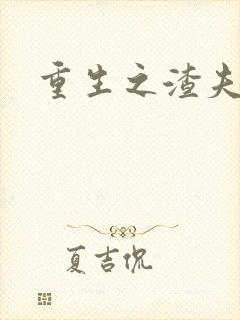 重生之渣夫
夏吉侃